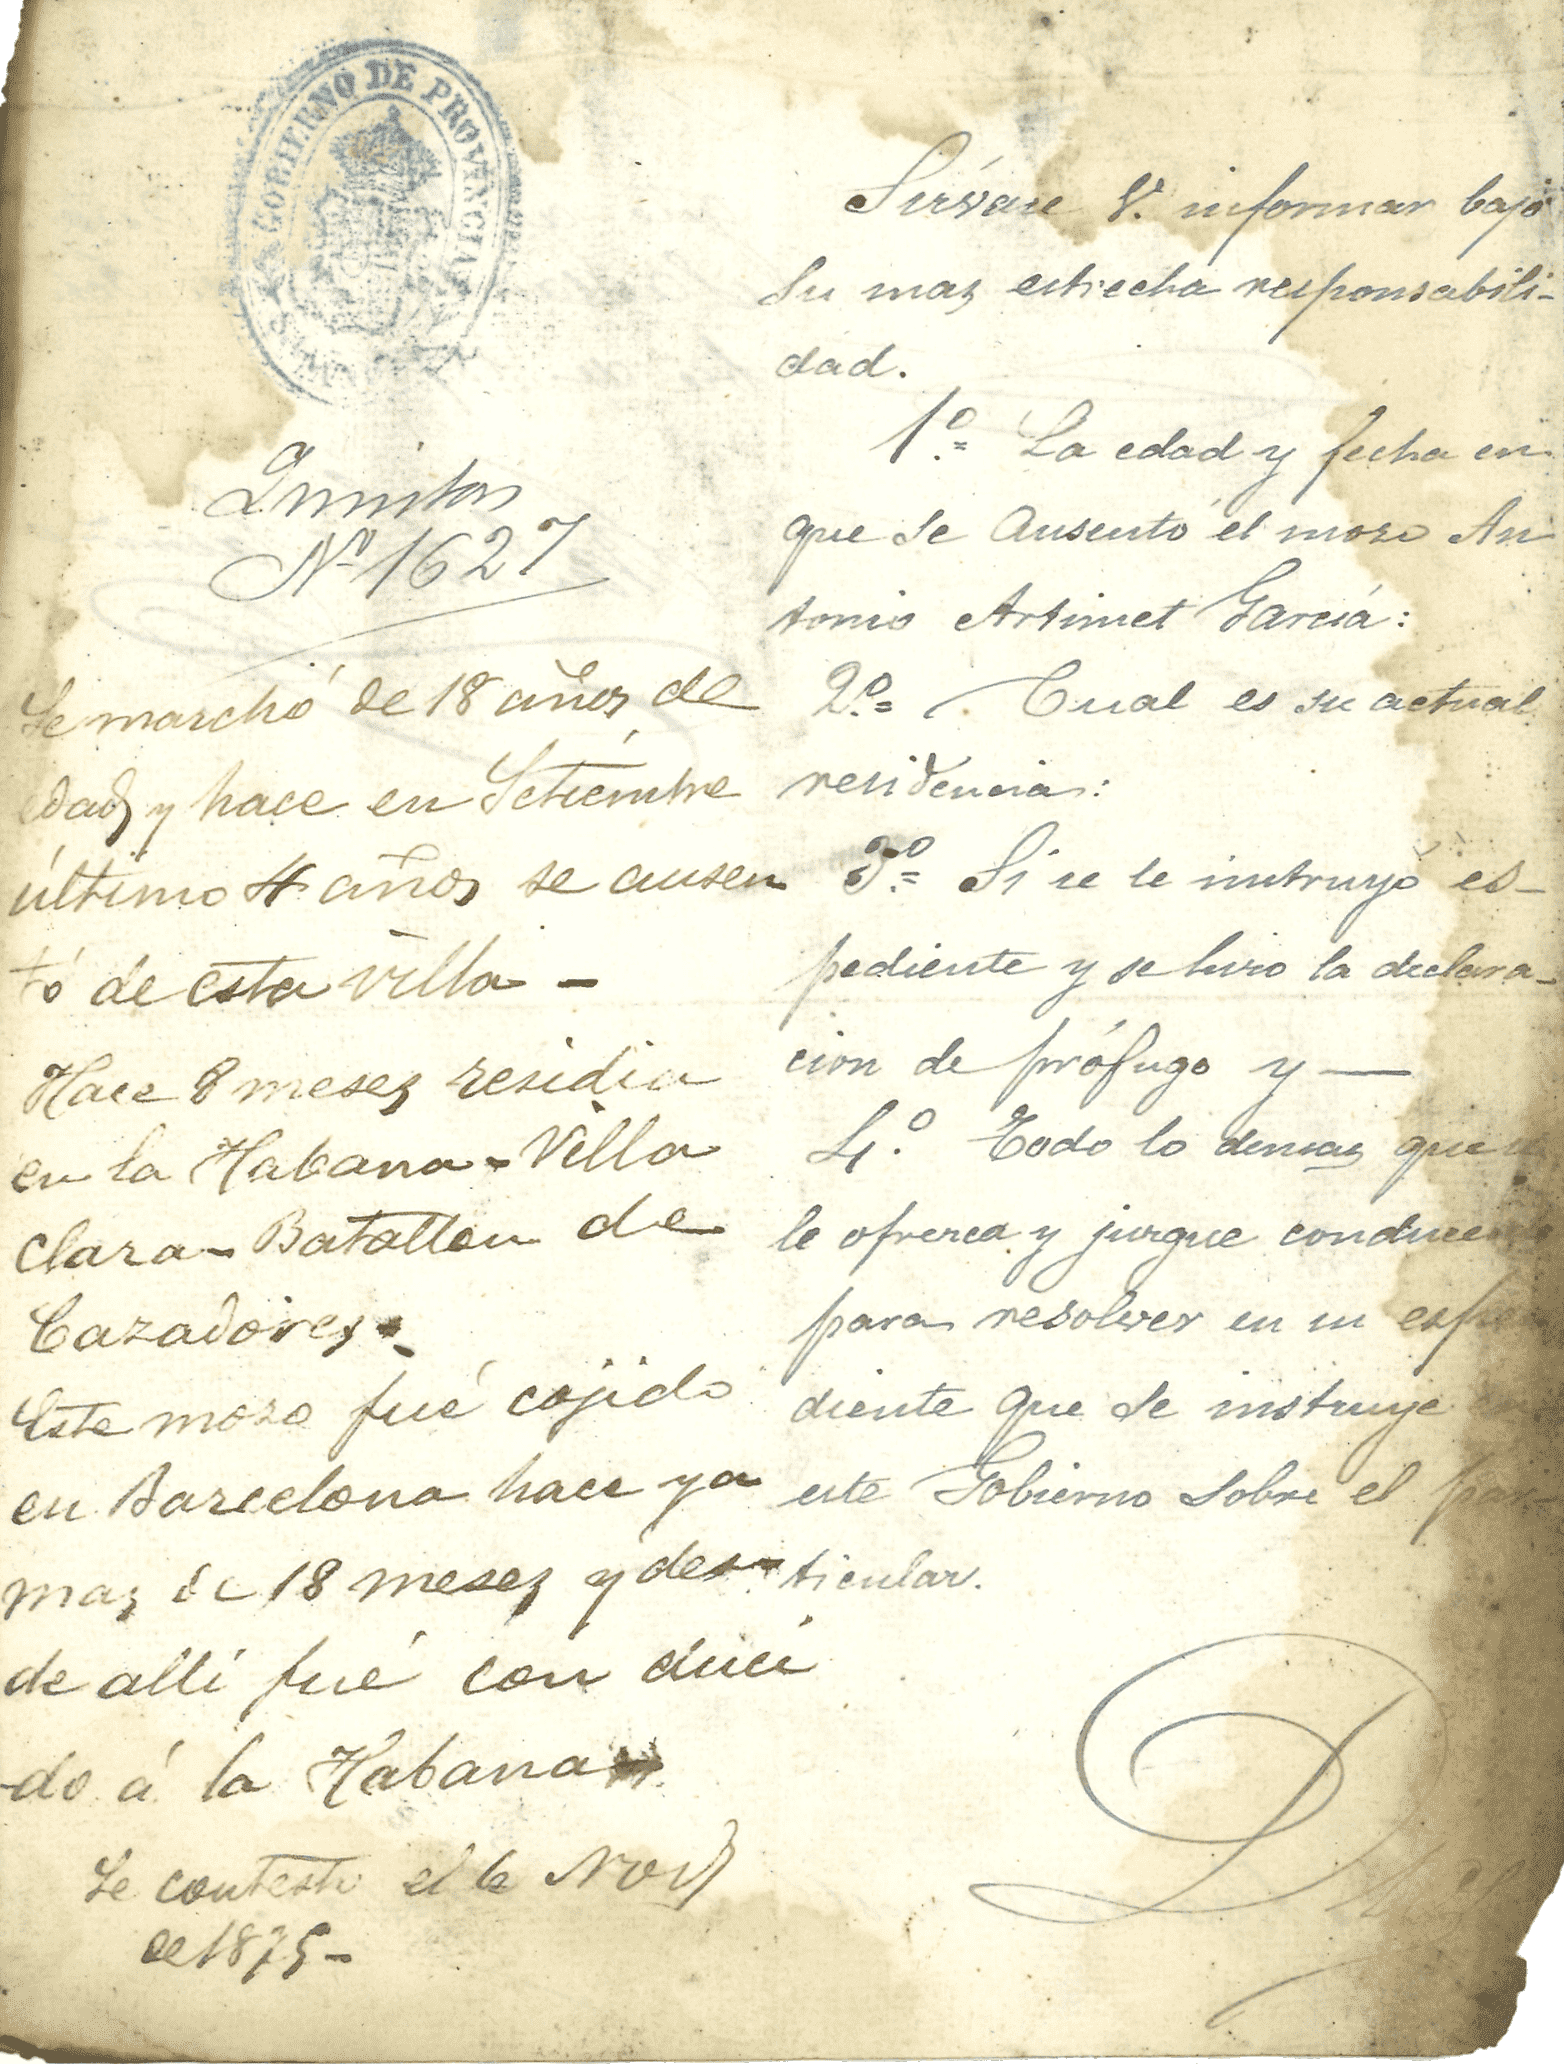 GOBIERNO DE PROVINCIA
Quintas
Nº 1627
Se marchó de 18 años de
edad y hace en Setiembre
último 4 años se ausen
tó de esta villa -
Hace 8 meses residia
en la Habana - Villa
clara - Batallon de
Cazadores -
Este moso fué cojido
en Barcelona hace ya
mas de 18 meses y des-
de alli fué conduci
-do á la Habana
Se contestó el 6 Nov
de 1875 -
Sirvase V. informar bajo
su mas estrecha responsabili-
dad.
1º = La edad y fecha en
que se ausentó el moso An
tonio Artimet Garciá:
2º = Cual es su actual
residencia:
3º = Si se le instruyó es-
pediente y se hiso la declara-
cion de prófugo y —
4.º Todo lo demas que se
le ofresca y jusgue conducente
para resolver en su espe
diente que se instruye en
este Gobierno sobre el par-
ticular.